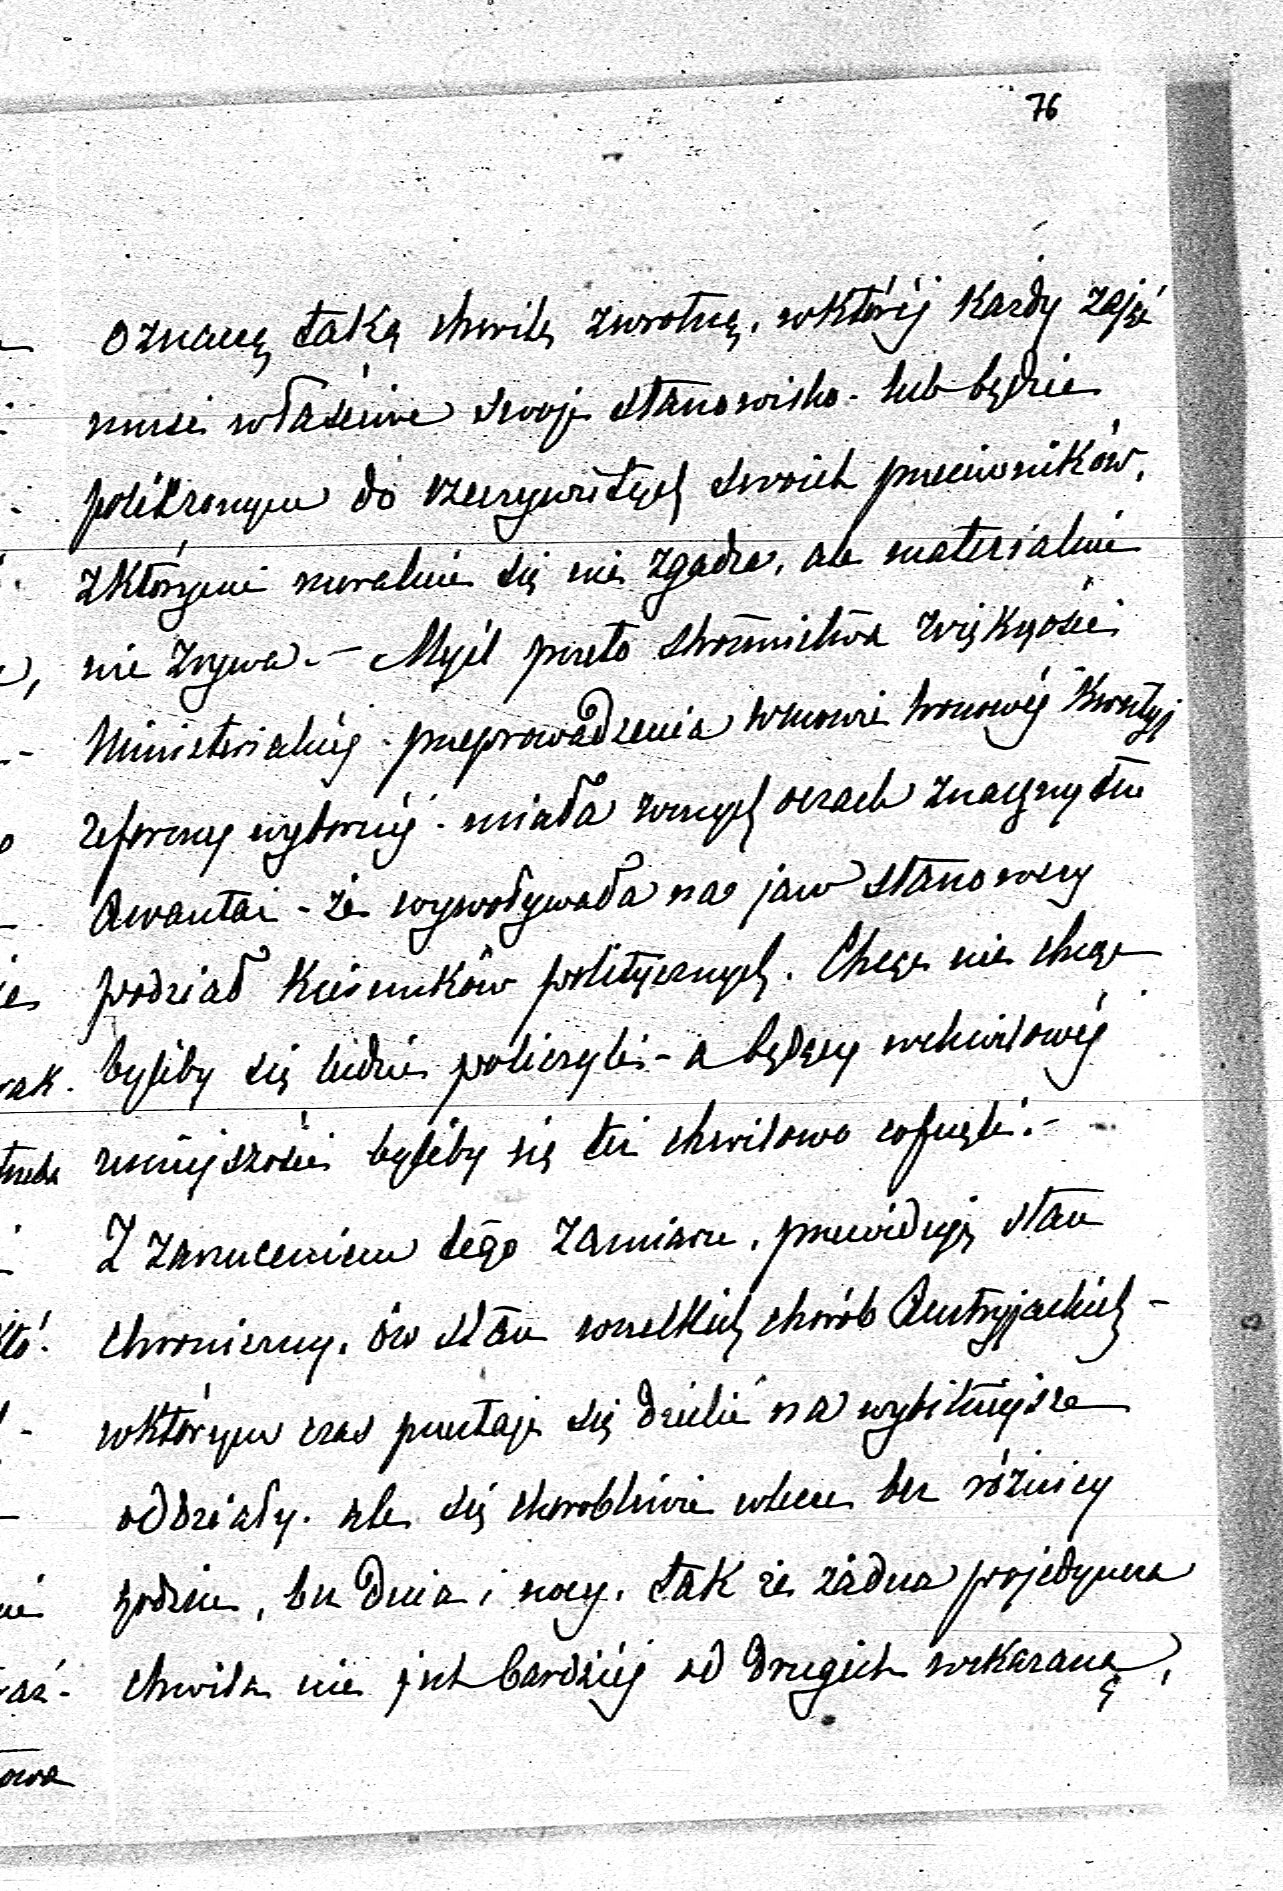 76
oznaczę taką chwilę zwrotną, w któréj każdy zająć
musi właściwe swoje stanowisko - lub będzie
policzonym do rzeczywistych swoich przeciwników,
z którymi moralnie się nie zgadza, ale materialnie
nie zrywa. - Myśl przeto stronnictwa większości
Ministerialnéj - przeprowadzenia w mowie tronowéj kwestyj
reformy wyborczéj - miała w mych oczach znaczny ten
Awantaż - że wywoływała na jaw stanowczy
podział kierunków politycznych. Chcąc nie chcąc
byliby się ludzie policzyli - a będący w chwilowéj
mniejszości byliby się też chwilowo cofnęli. -
Z zarzuceniem tego zamiaru, przewiduję stan
chroniczny, ów stan wszelkich chorób Austryjackich -
w którym czas przestaje się dzielić na wybitniejsze
oddziały. ale się chorobliwie wlecze bez różnicy
godzin, bez dnia i nocy, tak że żadna pojedyncza
chwila nie jest bardziéj od drugich wskazaną,
rak.
trzeba
któ.